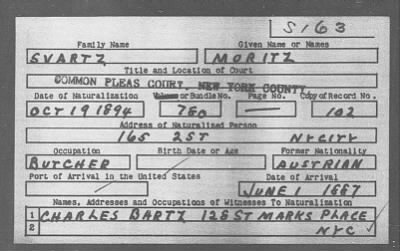 S163
Family Name Given Name or Names
SVARTZ MORITZ
Title and Location of Court
COMMON PLEAS COURT, NEW YORK COUNTY
Date of Naturalization Volume or Bundle No. Page No. Copy of Record No.
OCT 19 1894 780 — 102
Address of Naturalized Person
165 2 ST NY CITY
Occupation Birth Date or Age Former Nationality
BUTCHER AUSTRIAN
Port of Arrival in the United States Date of Arrival
JUNE 1 1887
Names, Addresses and Occupations of Witnesses To Naturalization
1 CHARLES BARTZ 128 ST MARKS PLACE
2 NYC